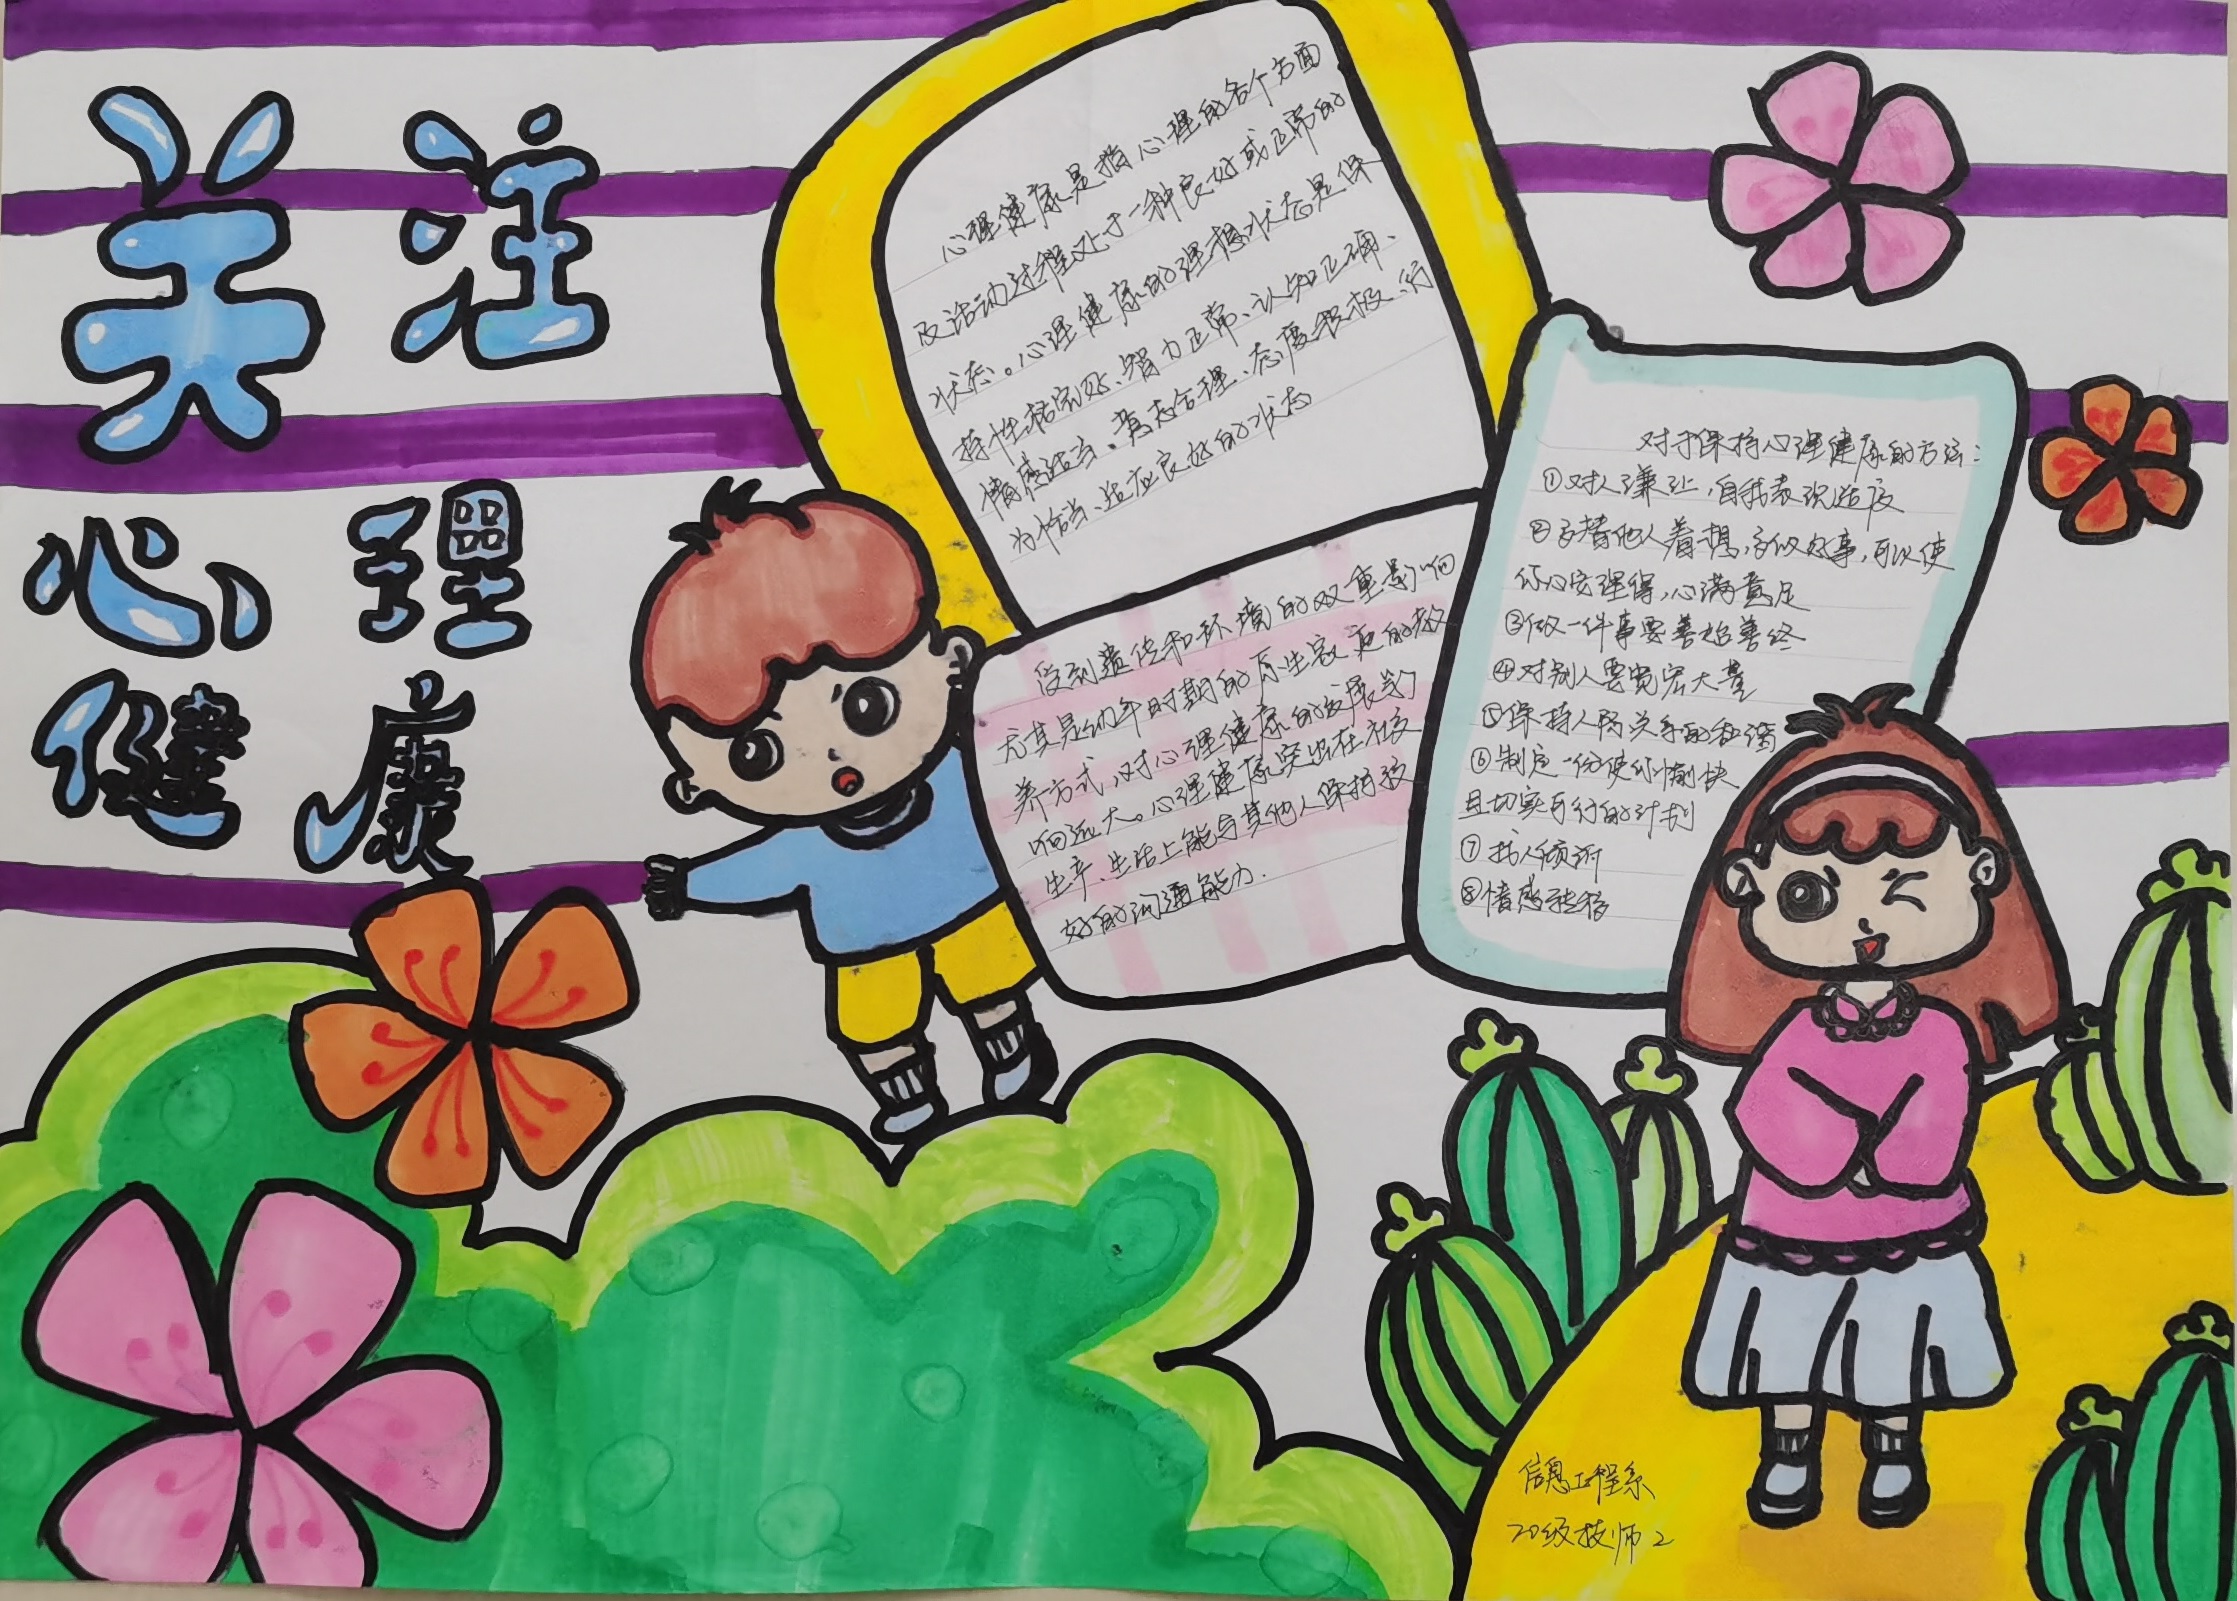 关注
心理
健康
心理健康是指心理的各个方面
及活动过程处于一种良好或正常的
状态。心理健康的理想状态是保
持性格完好、智力正常、认知正确、
情感适当、意志合理、态度积极、行
为恰当、适应良好的状态
受到遗传和环境的双重影响
尤其是幼年时期的原生家庭的教
养方式,对心理健康的发展影
响远大。心理健康突出在社交
生产、生活上能与其他人保持较
好的沟通能力.
对于保持心理健康的方法:
①对人谦让,自我表现适度
②多替他人着想,多做好事,可以使
你心安理得,心满意足
③做一件事要善始善终
④对别人要宽宏大量
⑤保持人际关系的和谐
⑥制定一份使你愉快
且切实可行的计划
⑦找人倾诉
⑧情感转移
信息工程系
20级技师2